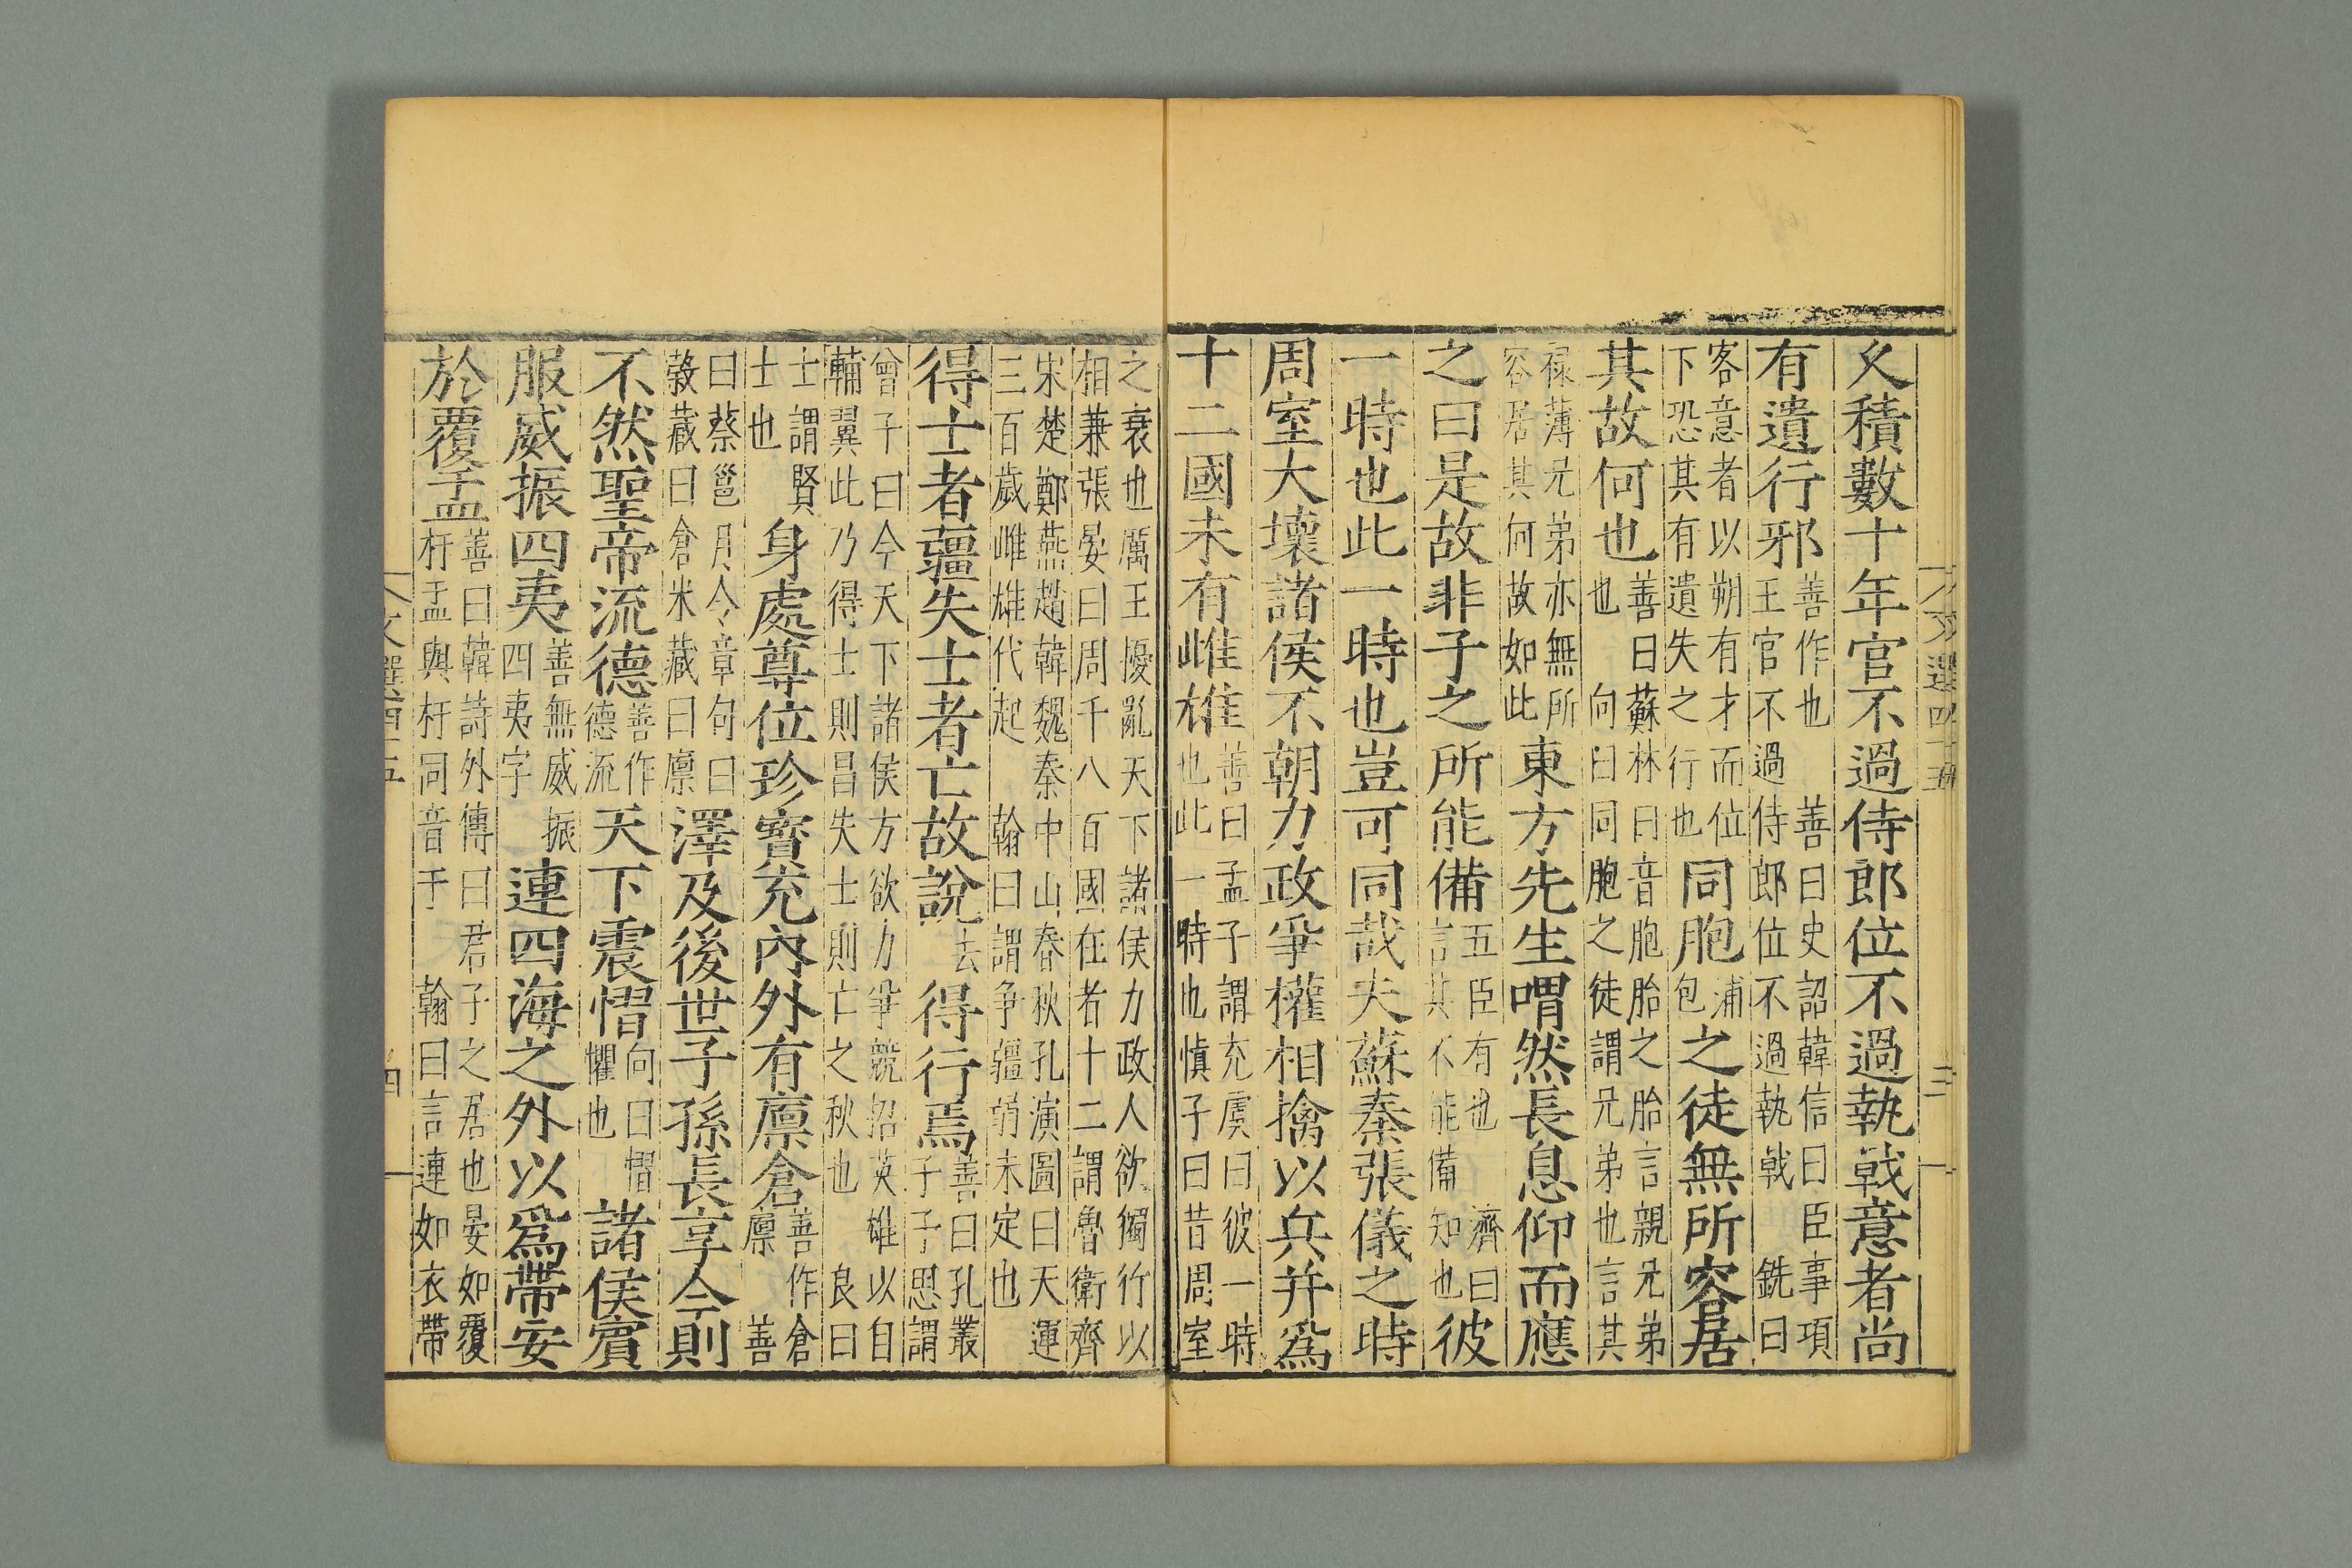 文選四十五
三
夂積數十年官不過侍郎位不過執戟意者尚
有遺行邪善作也王官不過侍郎位不過執戟善曰史記韓信曰臣事項銑曰
客意者以朔有才而位下恐其有遺失之行也同胞浦包之徒無所容居
其故何也善曰蘇林曰音胞胎之胎言親兄弟也向曰同胞之徒謂兄弟也言其
祿薄兄弟亦無所容居其何故如此東方先生喟然長息仰而應
之曰是故非子之所能備五臣有也濟曰言其不能備知也彼
一時也此一時也豈可同哉夫蘇秦張儀之時
周室大壞諸侯不朝力政爭權相擒以兵并為
十二國未有雌雄善曰孟子謂充虞曰彼一時也此一時也慎子曰昔周室
之衰也厲王擾亂天下諸侯力政人欲獨行以相兼張晏曰周千八百國在者十二謂魯衛齊
宋楚鄭燕趙韓魏秦中山春秋孔演圖曰天運三百歲雌雄代起翰曰謂爭疆弱未定也
得士者疆失士者亡故說去得行焉善曰孔叢子子思謂
曾子曰今天下諸侯方欲力爭競招英雄以自輔翼此乃得士則昌失士則亡之秋也良曰
士謂賢士也身處尊位珍寶充內外有廩倉善作倉廩善
曰蔡邕月令章句曰穀藏曰倉米藏曰廩澤及後世子孫長享今則
不然聖帝流德善作德流天下震慴向曰慴懼也諸侯賓
服威振四夷善無威振四夷字連四海之外以爲帶安
於覆盂善曰韓詩外傳曰君子之居也晏如覆杅盂與杅同音于翰曰言連如衣帶
文選四十五
四